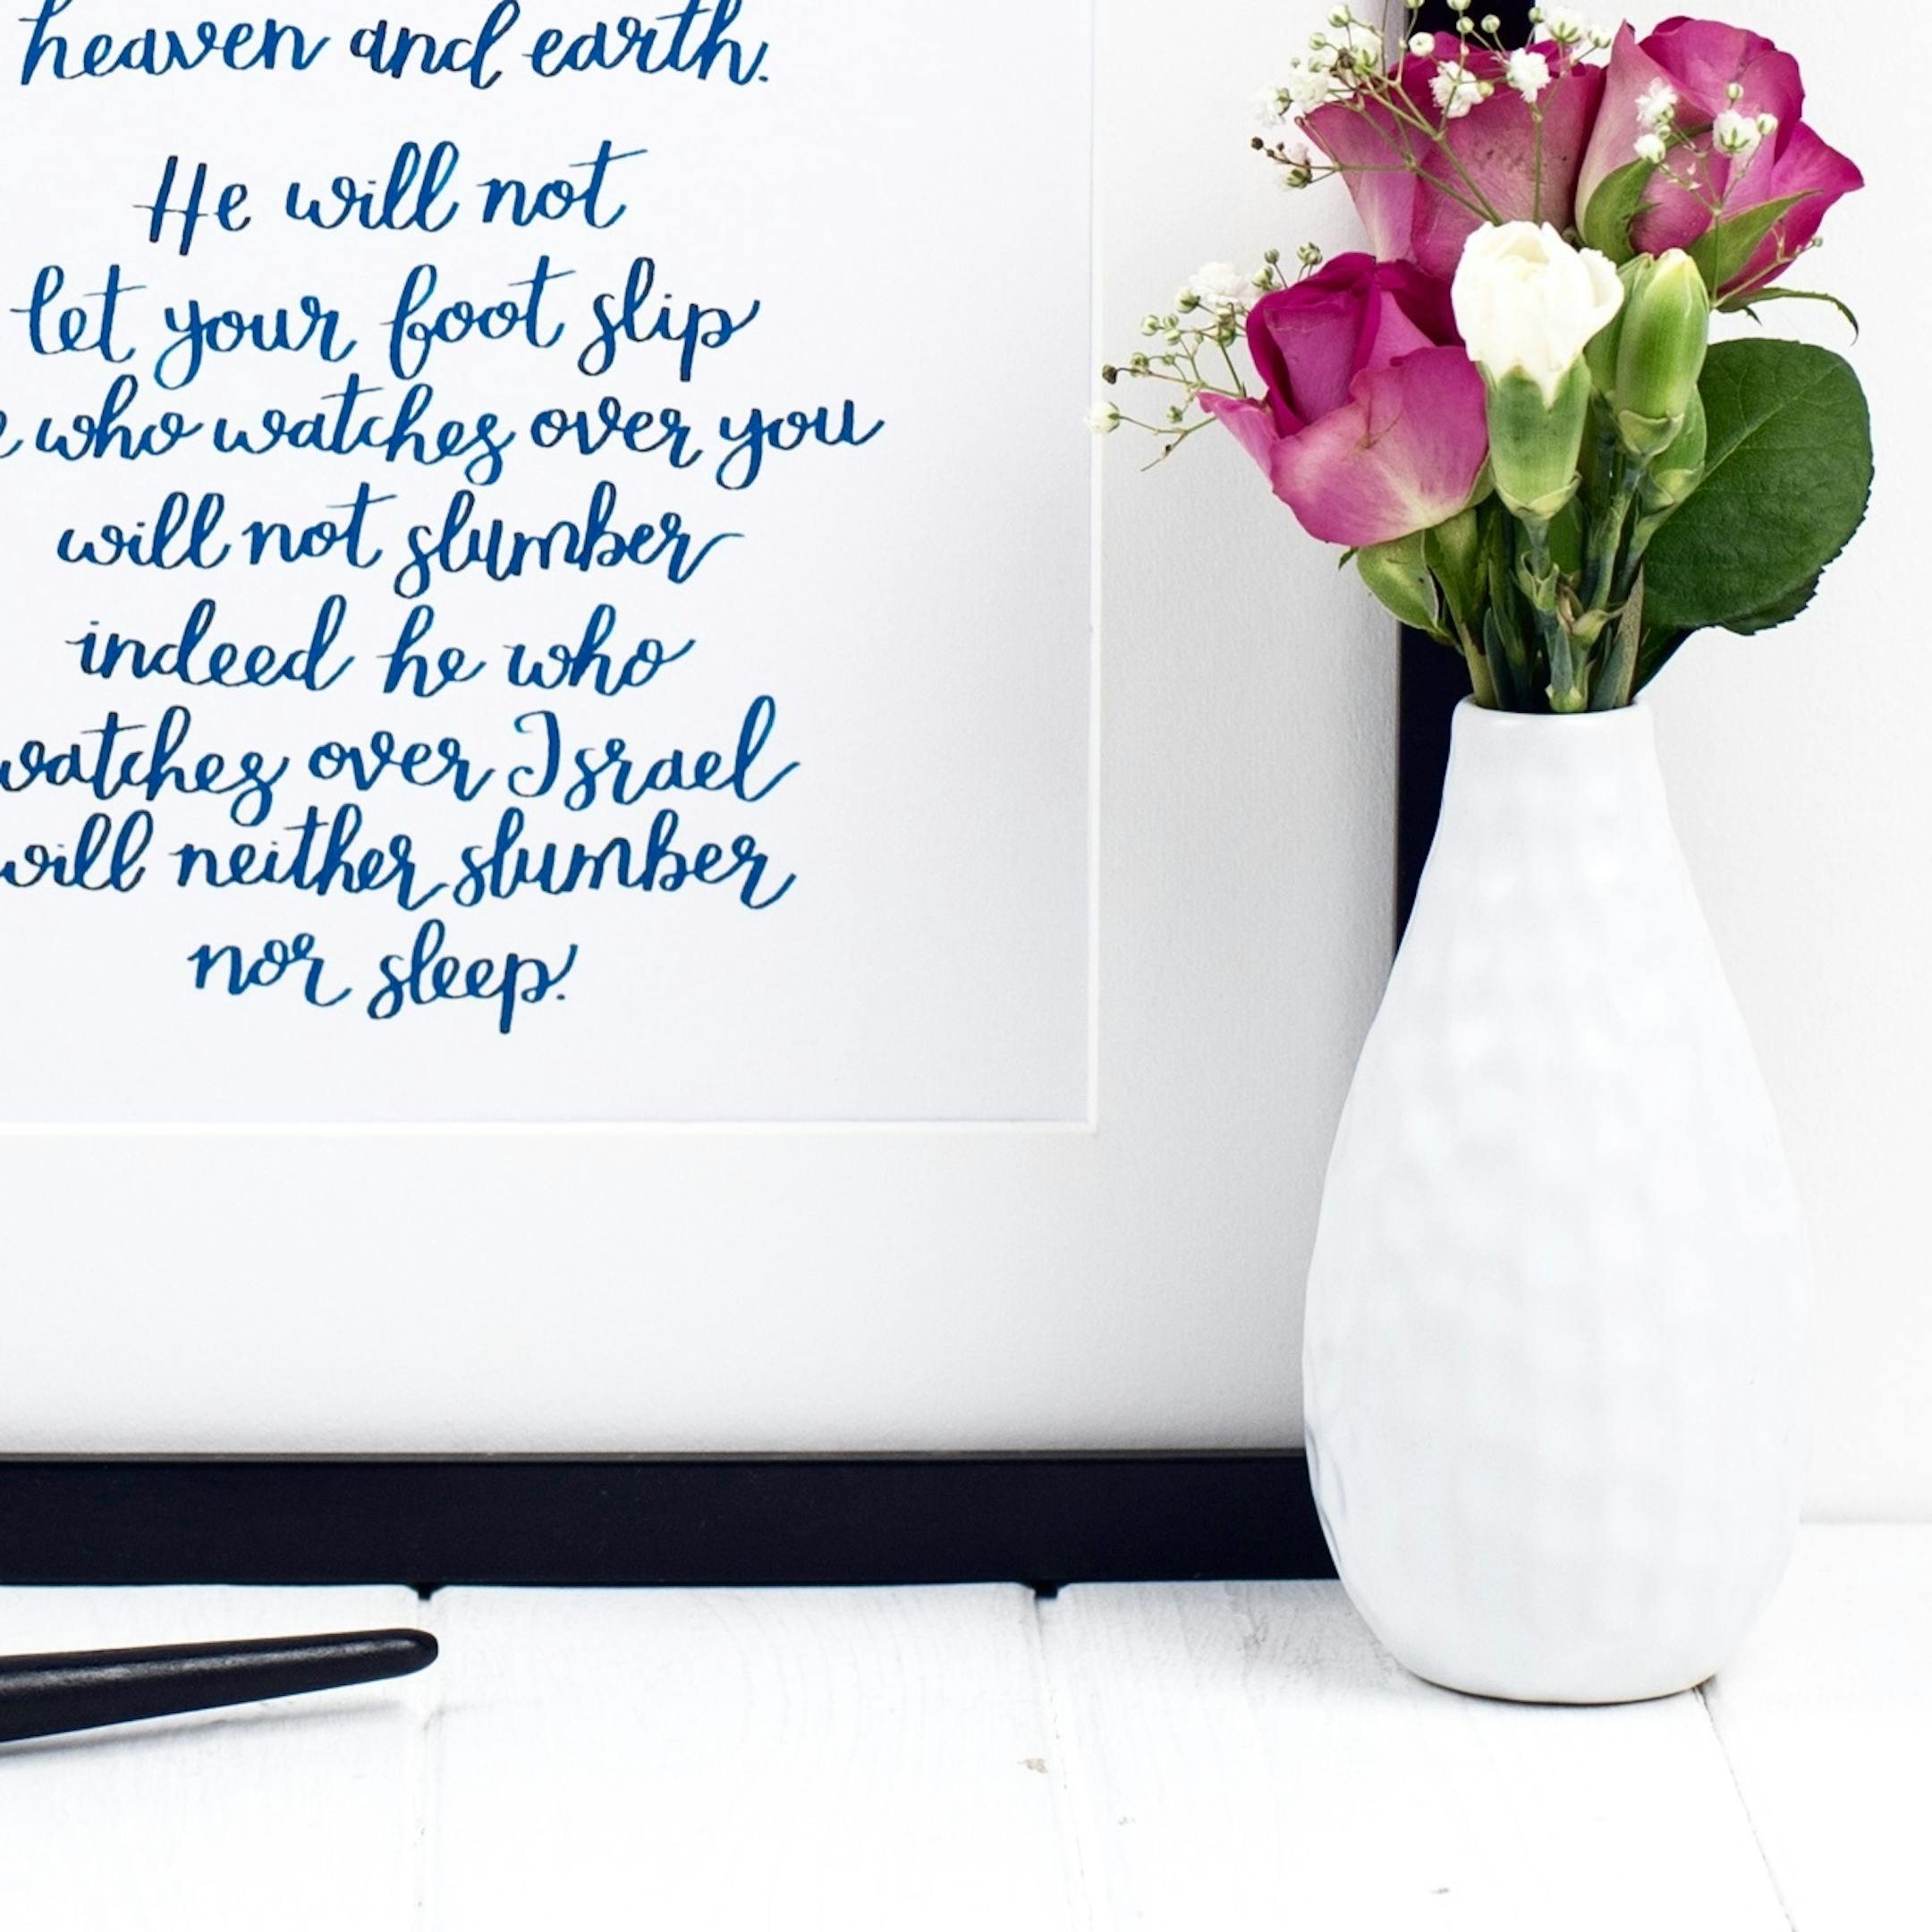 heaven and earth.
He will not
let your foot slip
who watches over you
will not slumber
indeed he who
watches over Israel
will neither slumber
nor sleep.